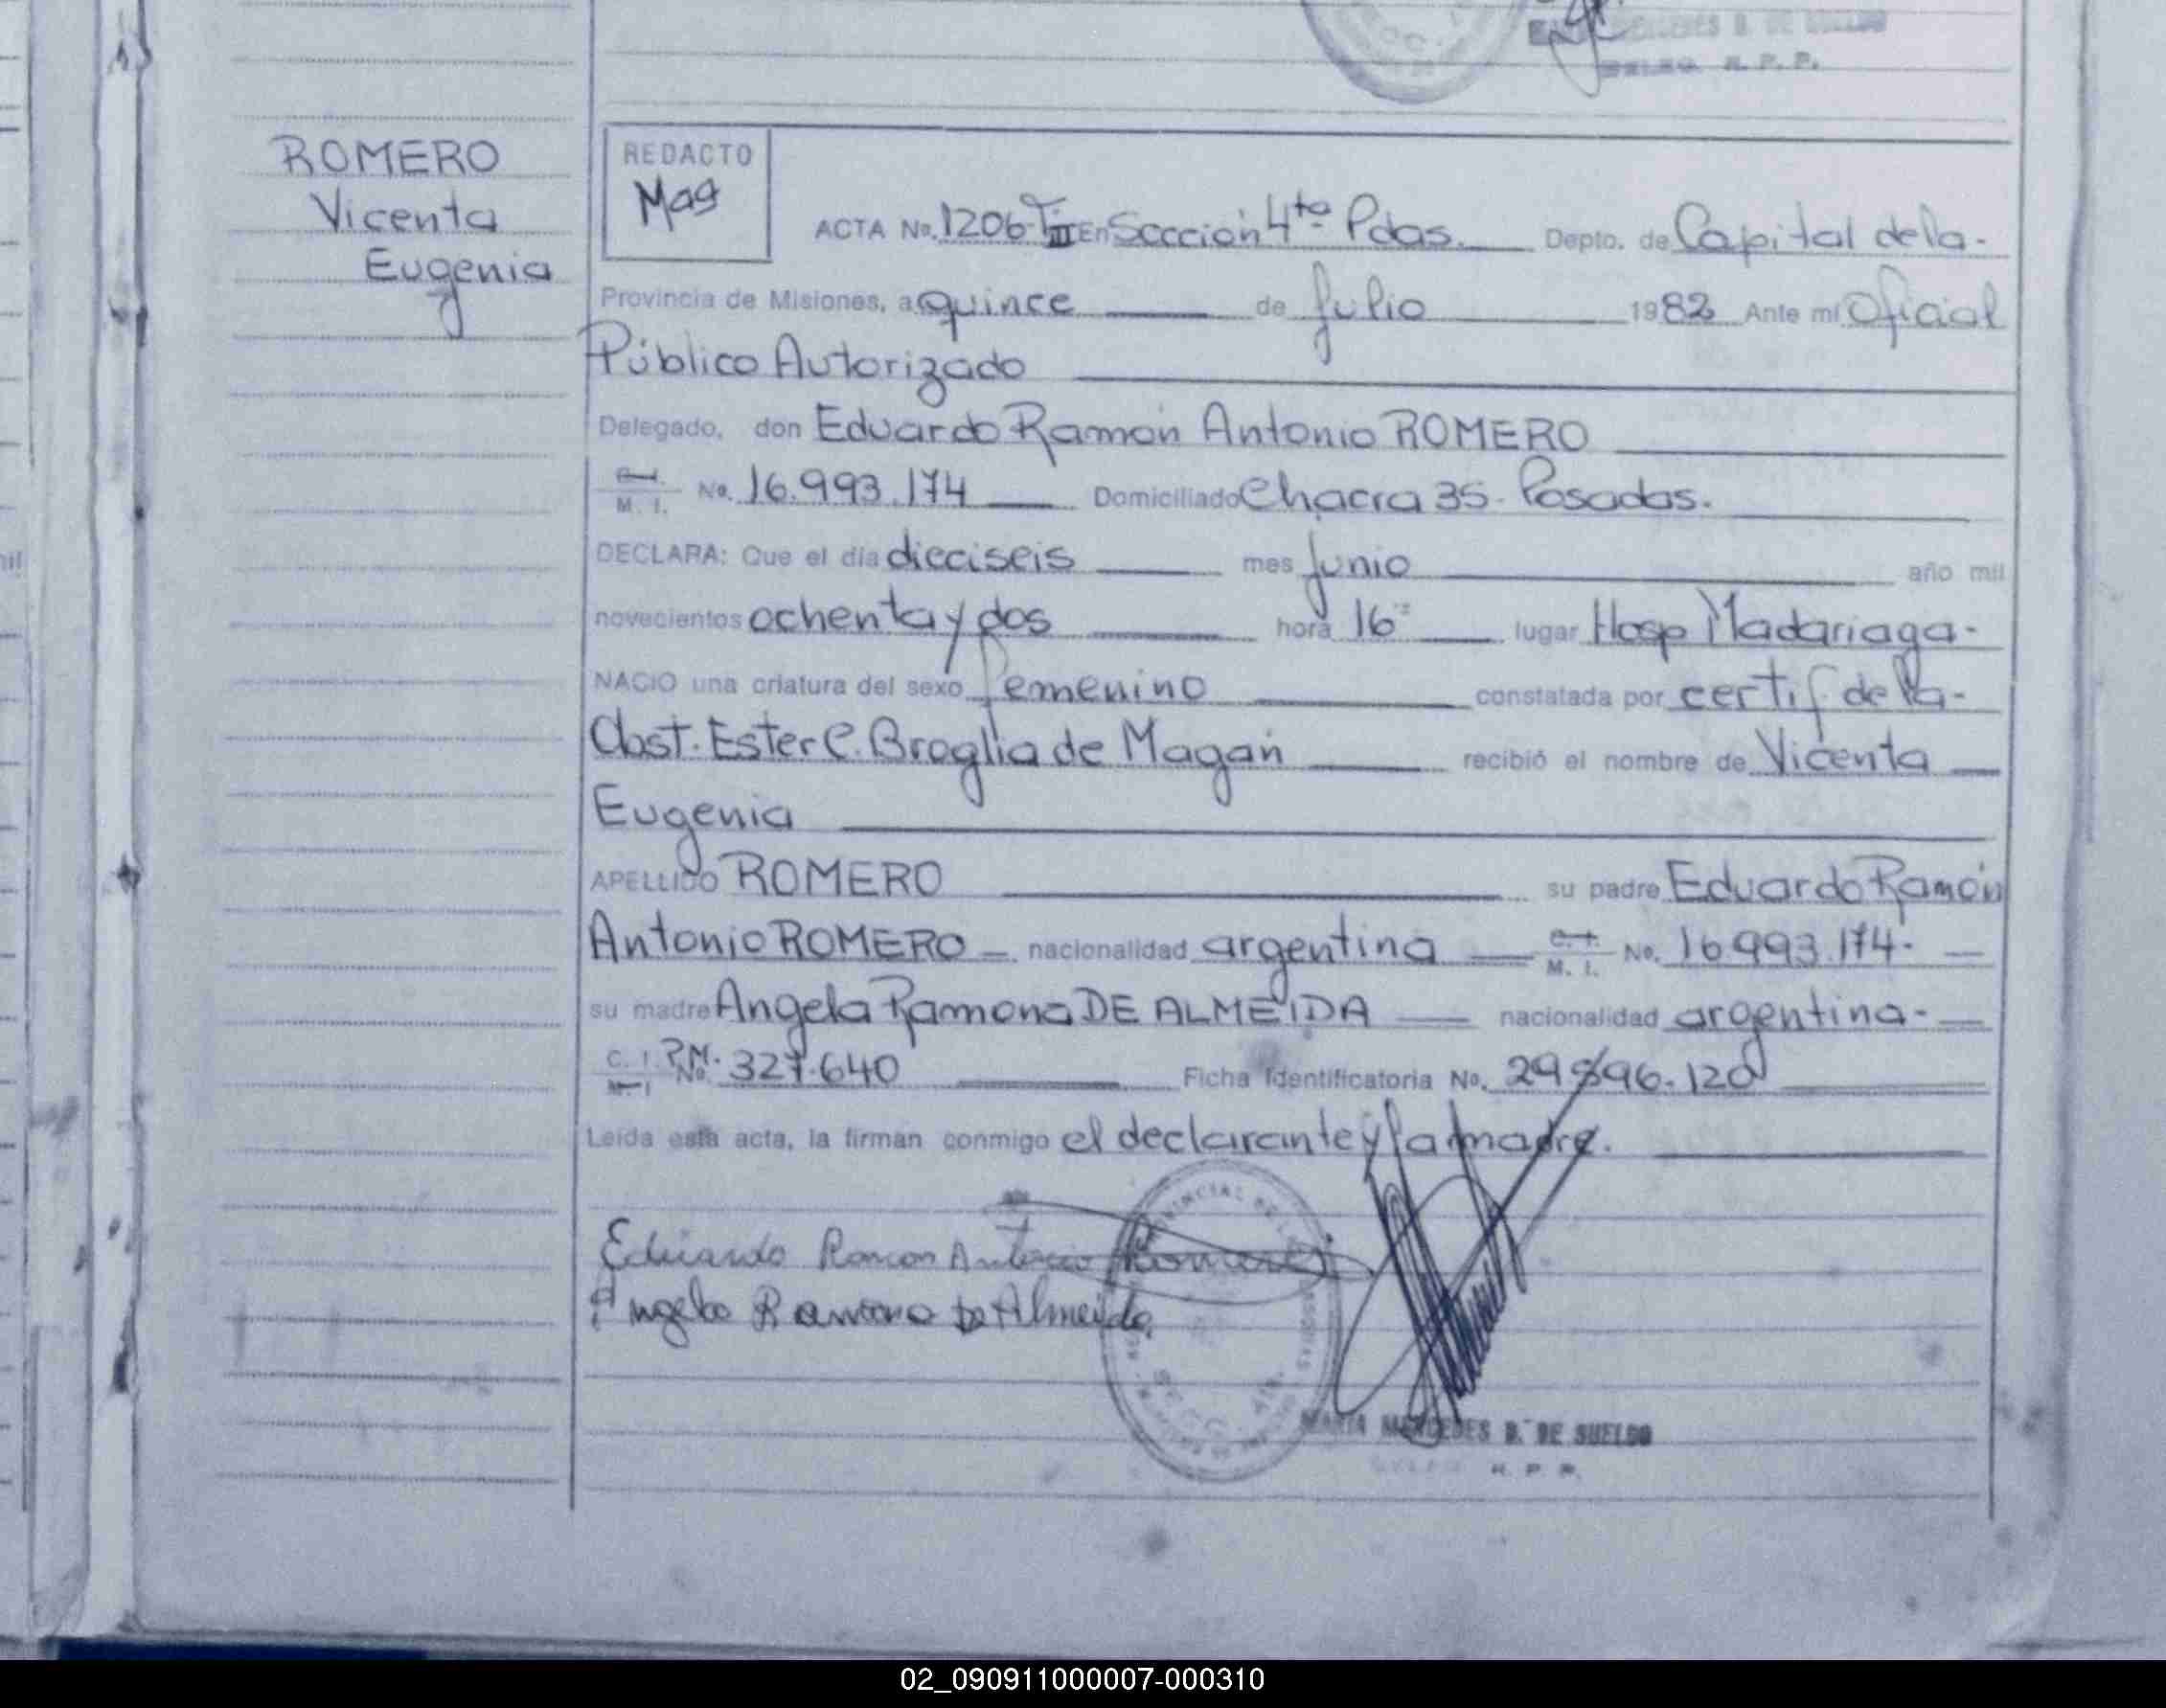 DE SUELDO
R. P. P.
ROMERO
Vicenta
Eugenia
REDACTO
Mag
ACTA No. 1206 T III En Sección 4ta Pdas. Depto. de Capital de la -
Provincia de Misiones, a quince de Julio 1982 Ante mí Oficial
Público Autorizado
Delegado, don Eduardo Ramón Antonio ROMERO
M. I. No. 16.993.174 Domiciliado Chacra 35 - Posadas.
DECLARA: Que el día dieciseis mes Junio año mil
novecientos ochenta y dos hora 16 lugar Hosp Madariaga -
NACIO una criatura del sexo femenino constatada por certif de la -
Obst. Ester C. Broglia de Magán recibió el nombre de Vicenta
Eugenia
APELLIDO ROMERO su padre Eduardo Ramón
Antonio ROMERO - nacionalidad argentina C. I. M. I. No. 16993.174 -
su madre Angela Ramona DE ALMEIDA nacionalidad argentina -
C. I. M. I. P.M. No. 327.640 Ficha Identificatoria No. 29896.120
Leída esta acta, la firman conmigo el declarante y la madre.
Eduardo Ramon Antonio Romero
Angela Ramona De Almeida
MARIA MERCEDES B. DE SUELDO
R. P. P.
02_090911000007-000310